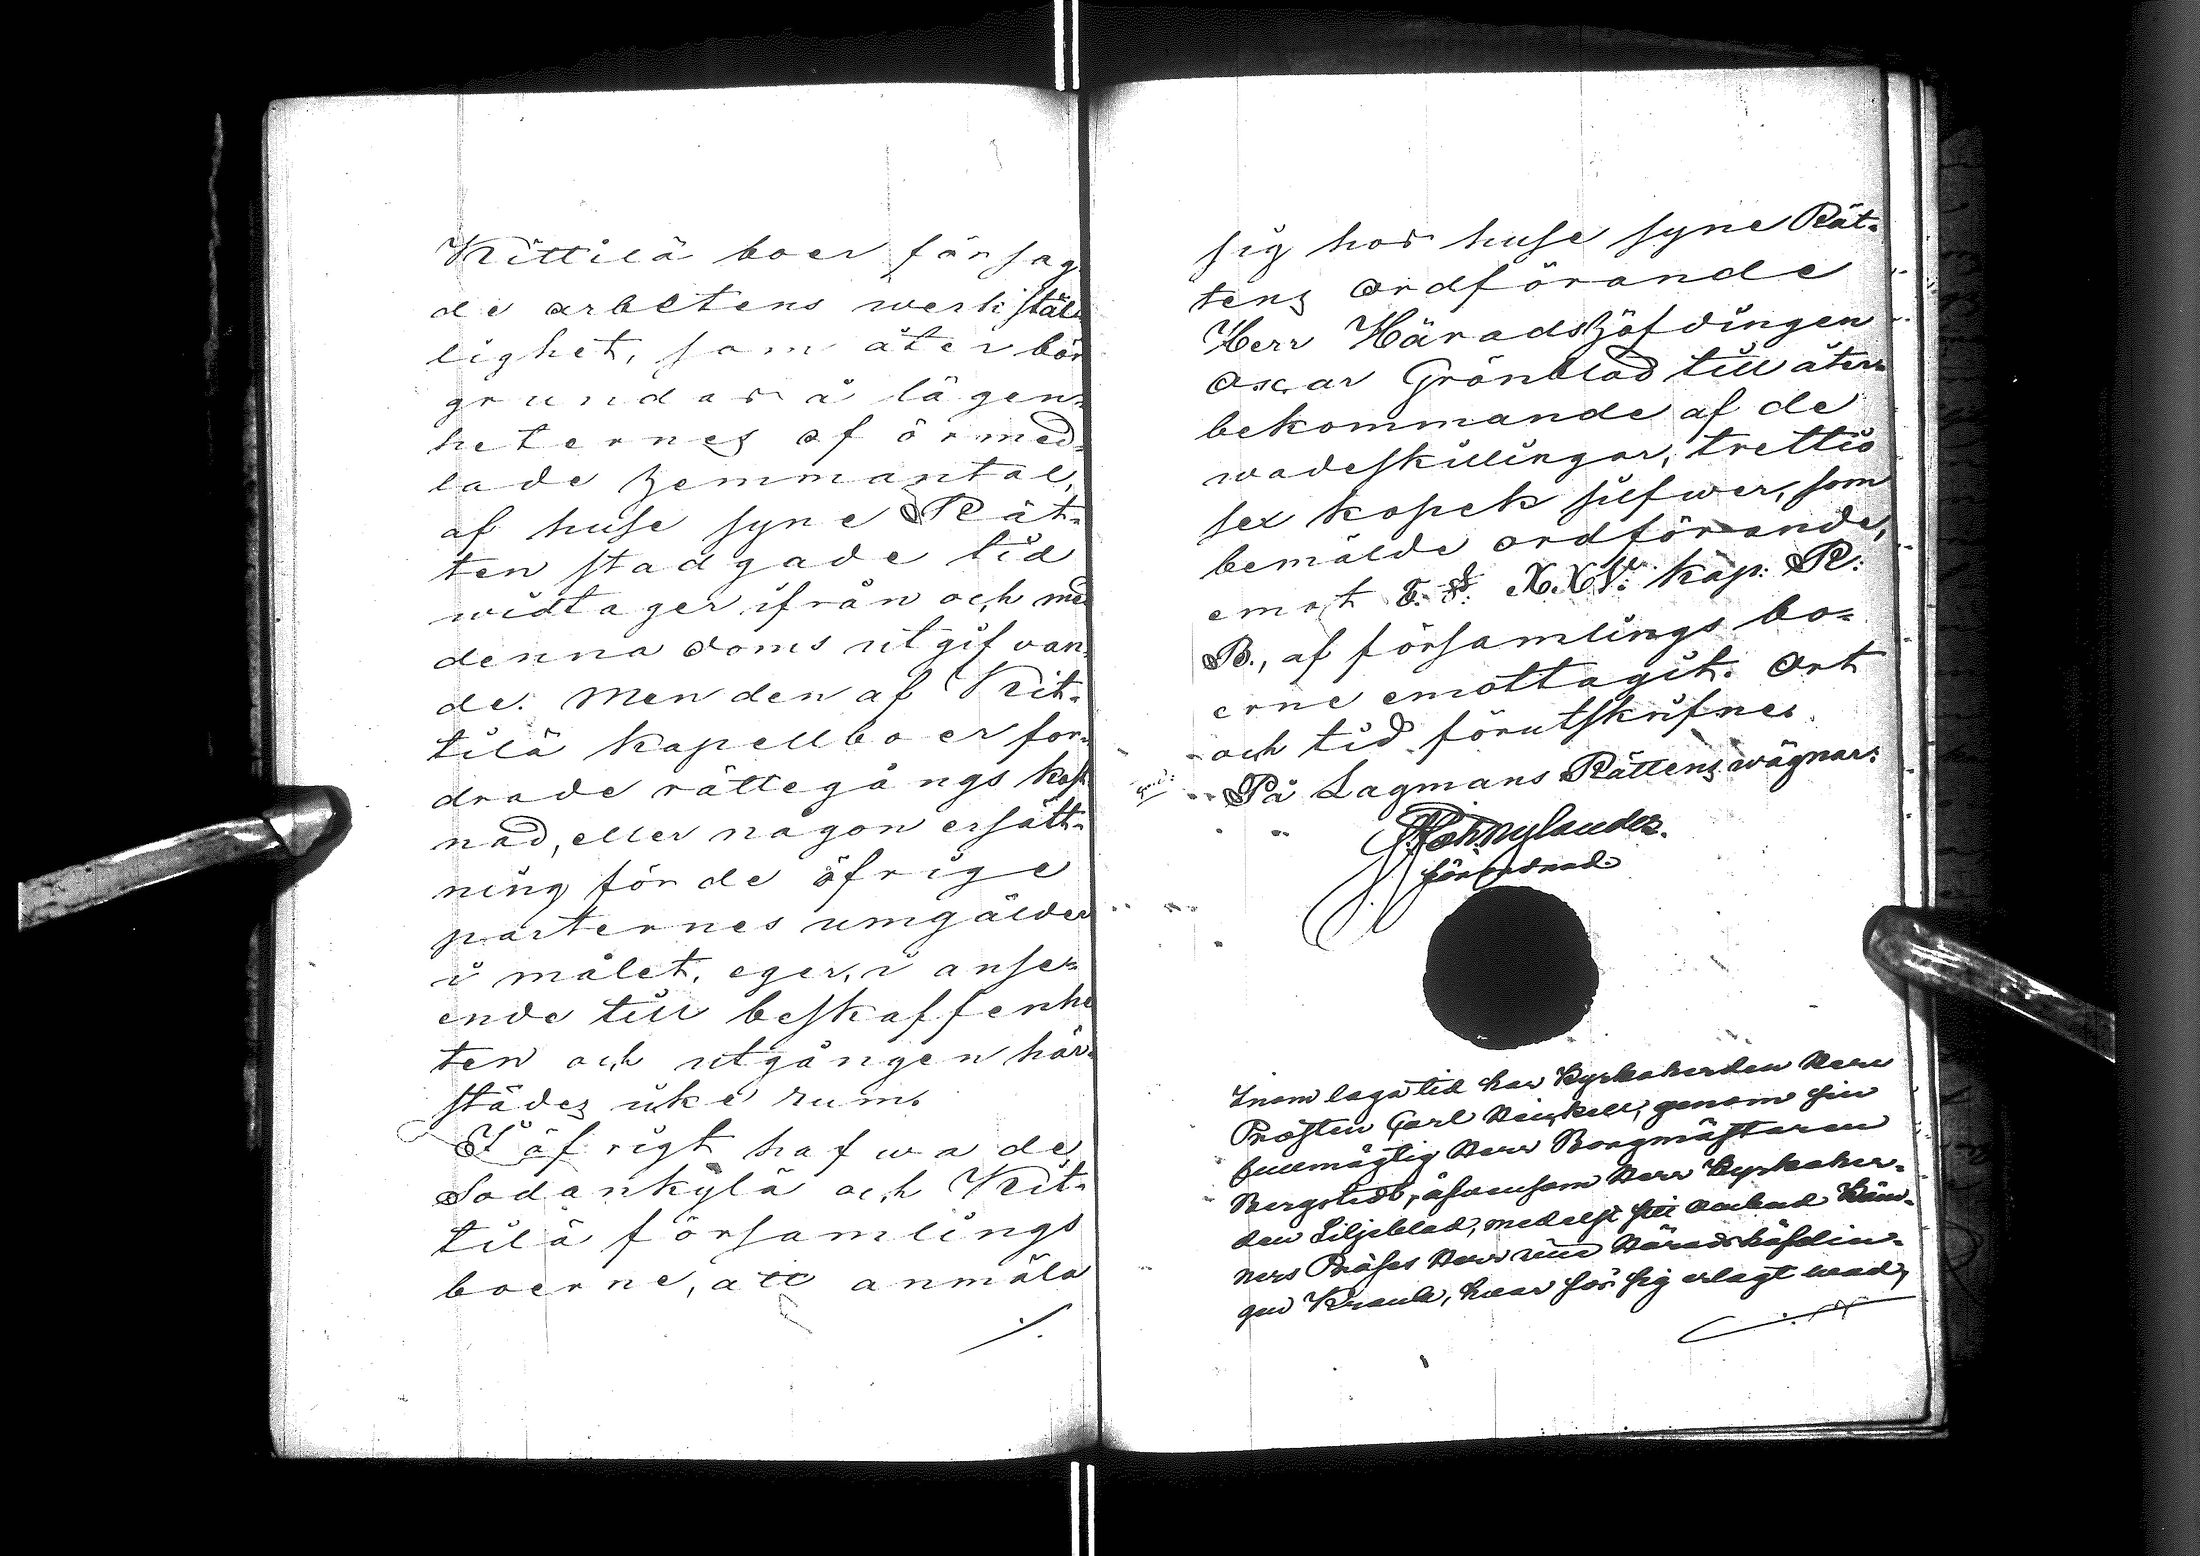 Kittilä boer försag-
de arbetens werkstäl-
lighet, som åter bör
grundas å lägen-
heternes oförmed-
lade hemmantal,
af huse syne Rät-
ten stadgade tid
widtager ifrån och med
denna doms utgifvan-
de. Men den af Kit-
tilä kapellboer for-
drade rättegångs kost-
nad, eller någon ersätt-
ning för de öfrige
parternes umgälder
i målet, eger, i anse-
ende till beskaffenhe
ten och utgången här-
städes icke rum.
I öfrigt hafwa de
Sodankylä och Kit-
tilä församlings
boerne, att anmäla
./.
sig hos huse syne Rät-
tens ordförande
Herr Häradshöfdingen
Oscar Grönblad till åter-
bekommande af de
wadeskillingar, trettio
sex kopek silfwer, som
bemälde ordförande,
emot 5. §. XXV. kap: R:
B., af församlings bo-
erne emottagit. Ort
och tid förutskrifne.
På Lagmans Rättens wägnar:
Joh. Nylander.
förordnad.
Inom laga tid har Kyrkoherden Herr
Prosten Carl Heickell, genom sin
fullmägtig Herr Borgmästaren
Bergstedt, äfwensom Herr Kyrkoher-
den Liljeblad, medelst sitt ombud Käm-
ners Präses Herr vice Häradshöfdin-
gen Krank, hwar för sig erlagt wad,
./.